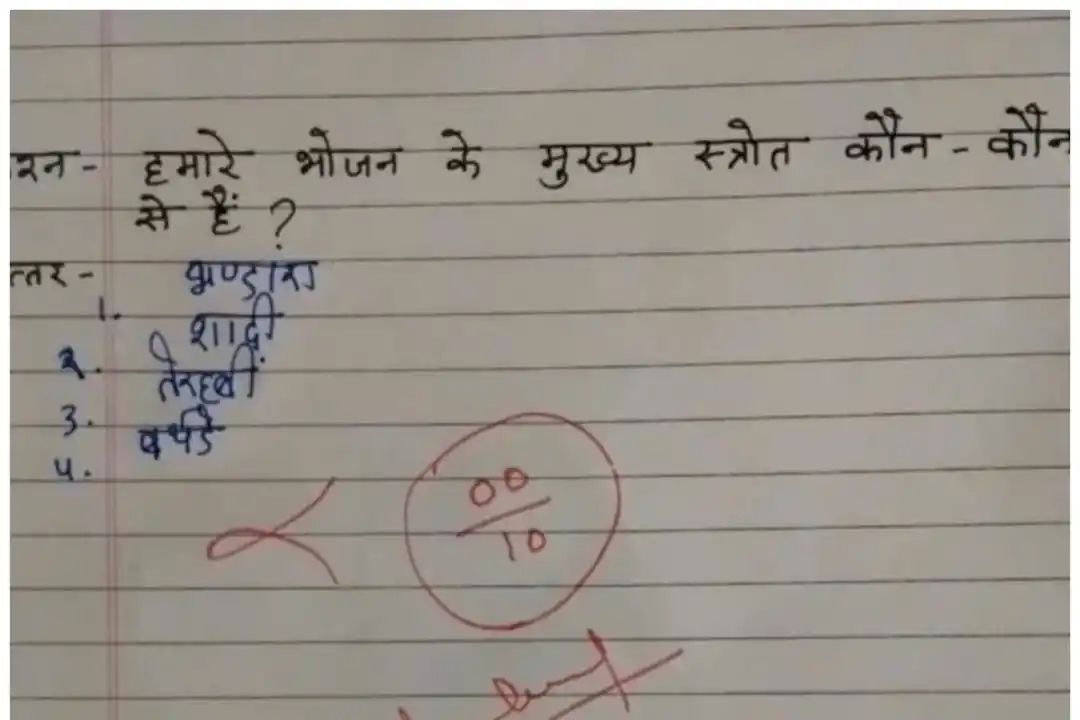 रन- हमारे भोजन के मुख्य स्त्रोत कौन-कौन
से हैं ?
त्तर-
1. भण्डारा
२. शादी
3. तेरहवीं
4. बर्थडे
00
10